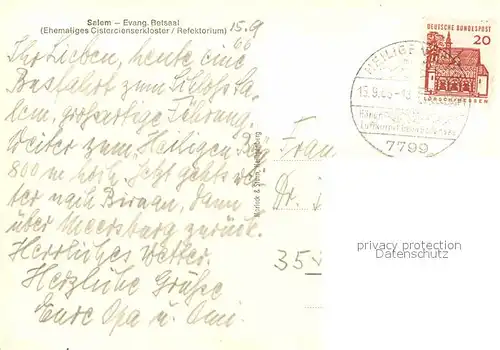 Salem — Evang. Betsaal
(Ehemaliges Cistercienserkloster / Refektorium)
15.9
66
Ihr Lieben, heute eine
Busfahrt zum Schloß Sa-
lem, großartige Führung.
Weiter zum Heiligen Bg
800 m hoch. Jetzt geht's wei-
ter nach Birnau, dann
über Meersburg zurück.
Herrliches Wetter.
Herzliche Grüße
Eure Opa u. Omi.
Frau
Dr.
35
DEUTSCHE BUNDESPOST
20
LORSCH/HESSEN
HEILIGENB
15.9.66
7799
privacy protection
Datenschutz